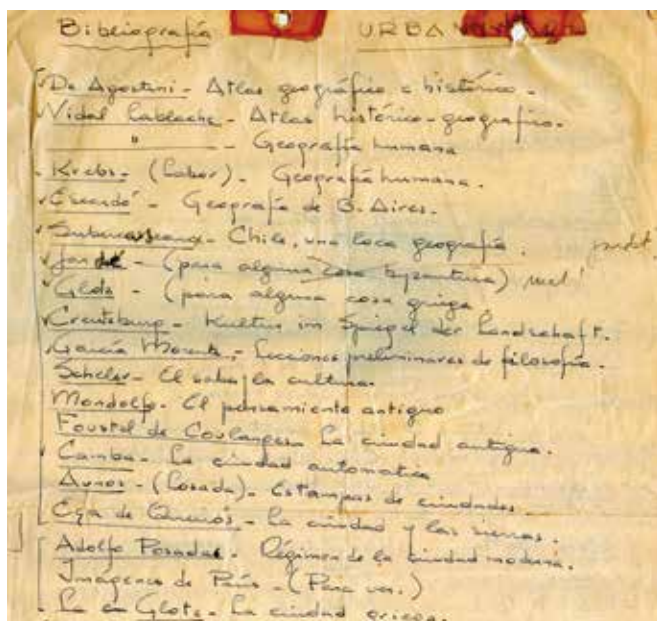 Bibliografía URBANISMO
De Agostini - Atlas geográfico e histórico -
Vidal Lablache - Atlas histórico-geografico.
" - Geografía humana
Krebs - (Labor) - Geografía humana.
Escardó - Geografía de B. Aires.
Subercaseaux - Chile, una loca geografía.
Jardé - (para alguna cosa byzantina)
Glotz - (para alguna cosa griega
Creutzburg - Kultur im Spiegel der Landschaft.
García Morente - Lecciones preliminares de filosofía.
Scheler - El saber y la cultura.
Mondolfo - El pensamiento antiguo
Foustel de Coulanges - La ciudad antigua.
Camba - La ciudad automatica
Aunós - (Losada) - Estampas de ciudades.
Eça de Queiros - La ciudad y las sierras.
Adolfo Posadas - Régimen de la ciudad moderna.
Imágenes de París - (Para ver.)
Glotz - La ciudad griega.